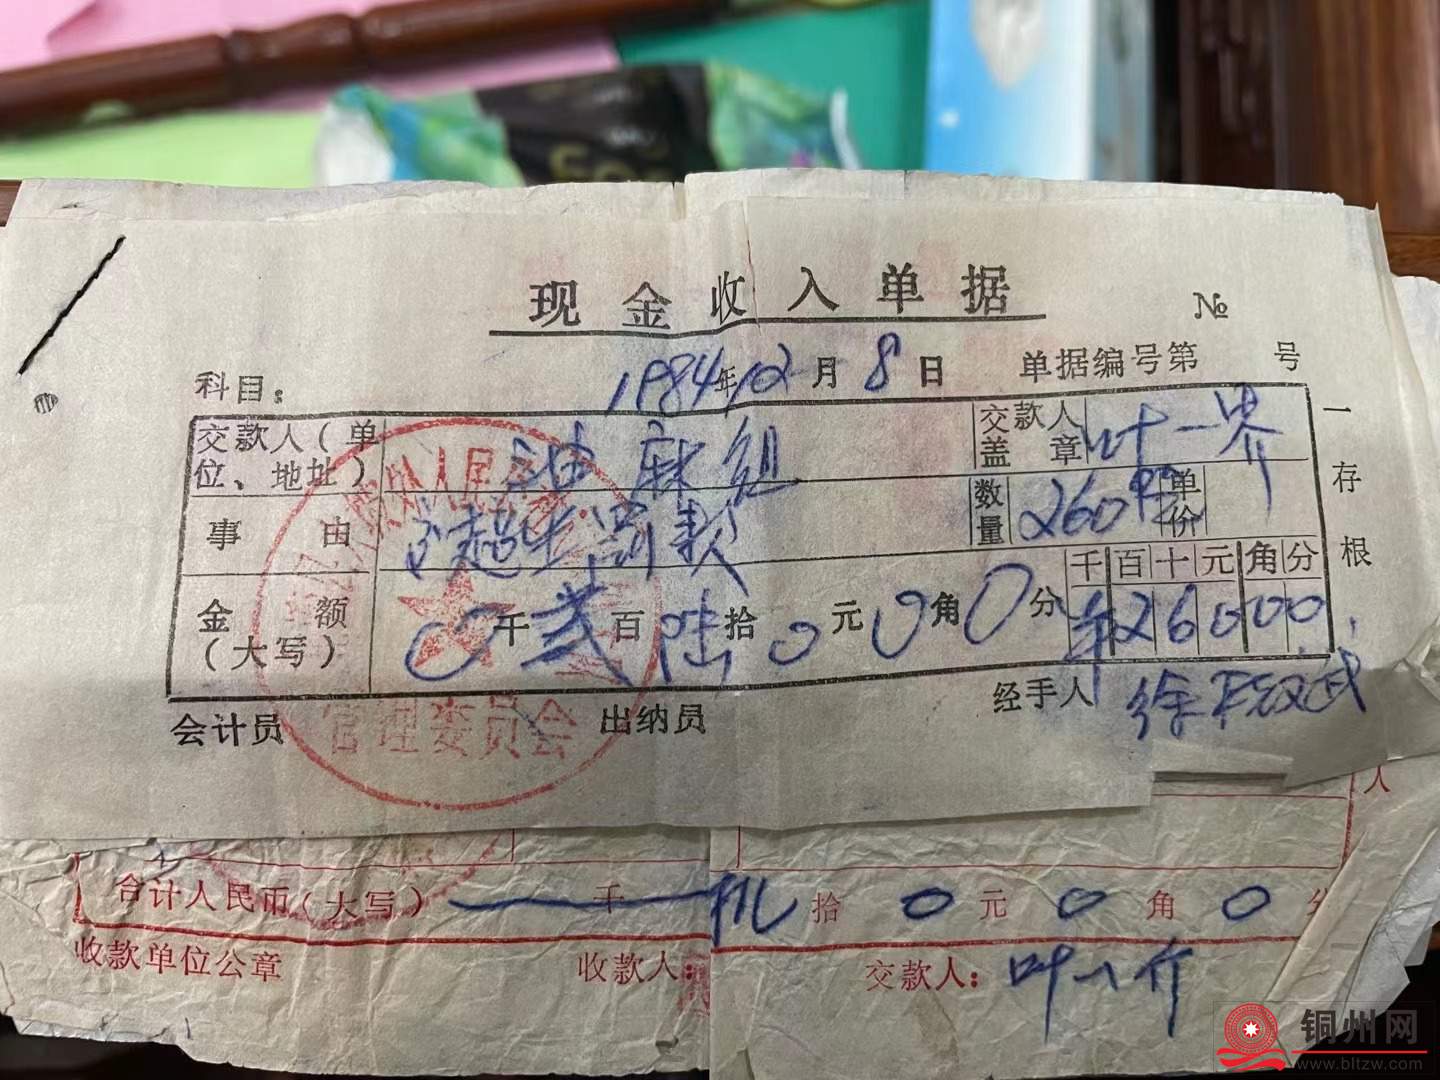 现金收入单据
№
科目： 1984年12月8日 单据编号第 号
交款人（单位、地址） 油麻组 交款人盖章 叶一界
事由 超生罚款 数量 260 单价
千百十元角分
金额（大写） 0千贰百陆拾0元0角0分 ¥26000
一存根
会计员 出纳员 经手人 徐
管理委员会
人
合计人民币（大写） 千 拾0元0角0分
收款单位公章 收款人： 交款人： 叶一介
铜州网
www.bltzw.com